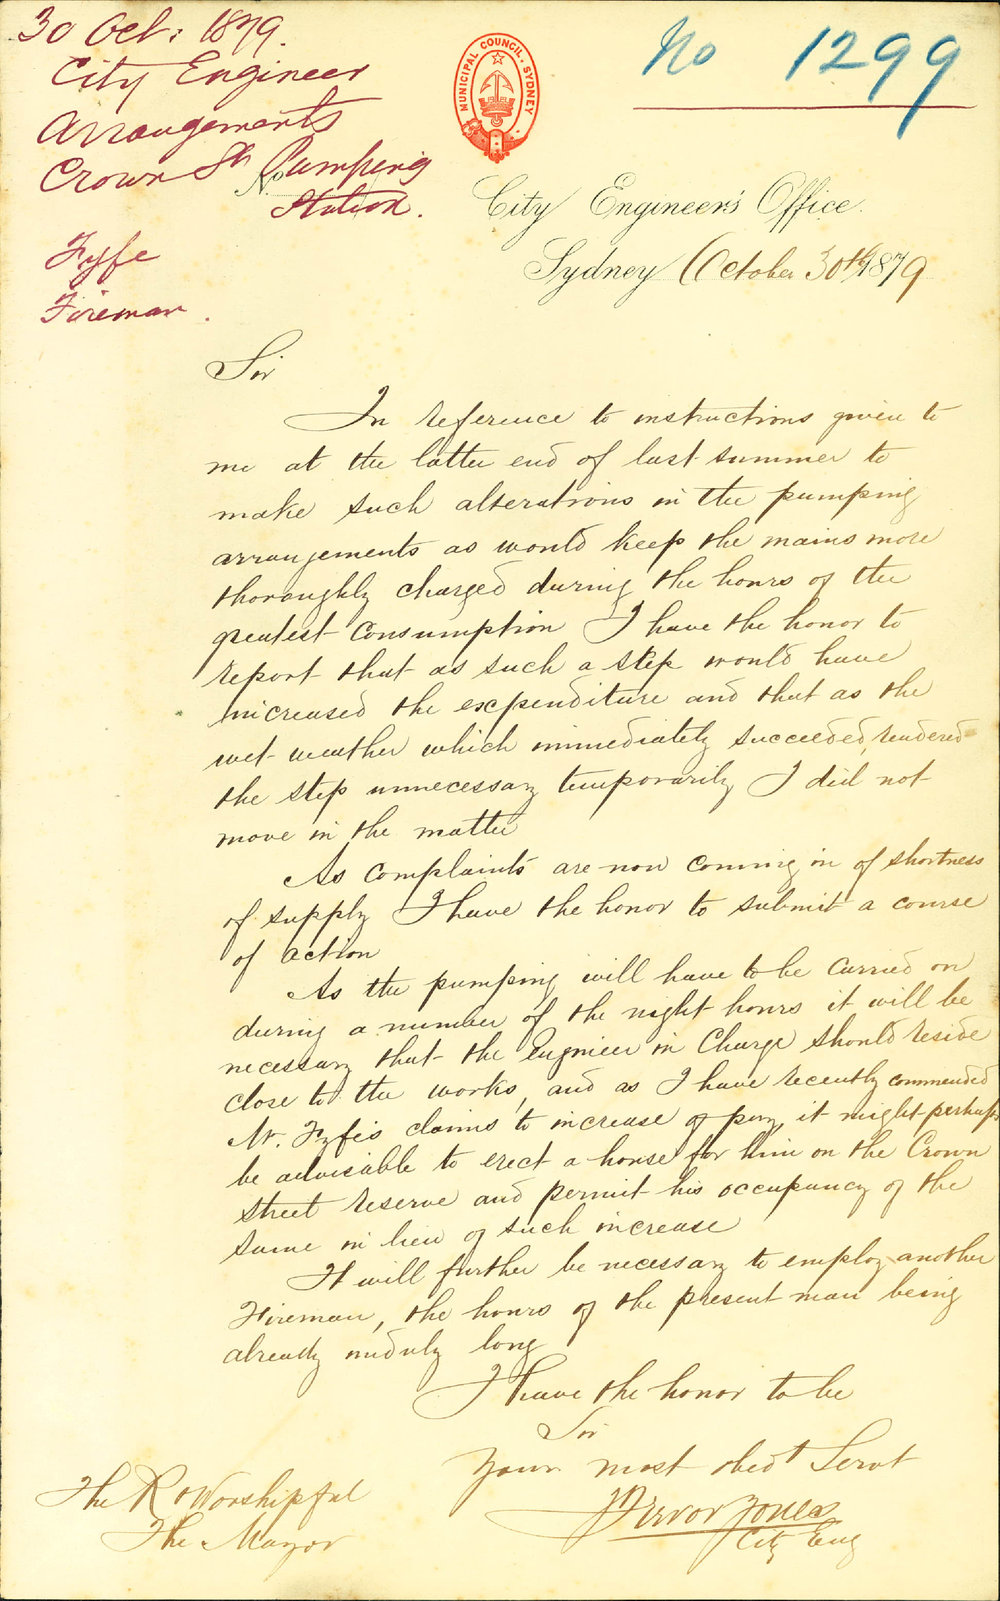 30 Oct: 1879.
City Engineer
Arrangements
Crown St Pumping
Station.
Fyfe
Fireman.
No 1299
MUNICIPAL COUNCIL, SYDNEY
No
City Engineer's Office.
Sydney October 30th 1879
Sir
In reference to instructions given to
me at the latter end of last summer to
make such alterations in the pumping
arrangements as would keep the mains more
thoroughly charged during the hours of the
greatest consumption I have the honor to
report that as such a step would have
increased the expenditure and that as the
wet weather which immediately succeeded, rendered
the step unnecessary temporarily I did not
move in the matter
As complaints are now coming in of shortness
of supply I have the honor to submit a course
of action
As the pumping will have to be carried on
during a number of the night hours it will be
necessary that the Engineer in Charge should reside
close to the works, and as I have recently commended
Mr. Fyfe's claims to increase of pay, it might perhaps
be advisable to erect a house for him on the Crown
street reserve and permit his occupancy of the
same in lieu of such increase
It will further be necessary to employ another
Fireman, the hours of the present man being
already unduly long
I have the honor to be
Sir
Your most obedt Servt
Trevor Jones
City Eng
The Rt Worshipful
The Mayor